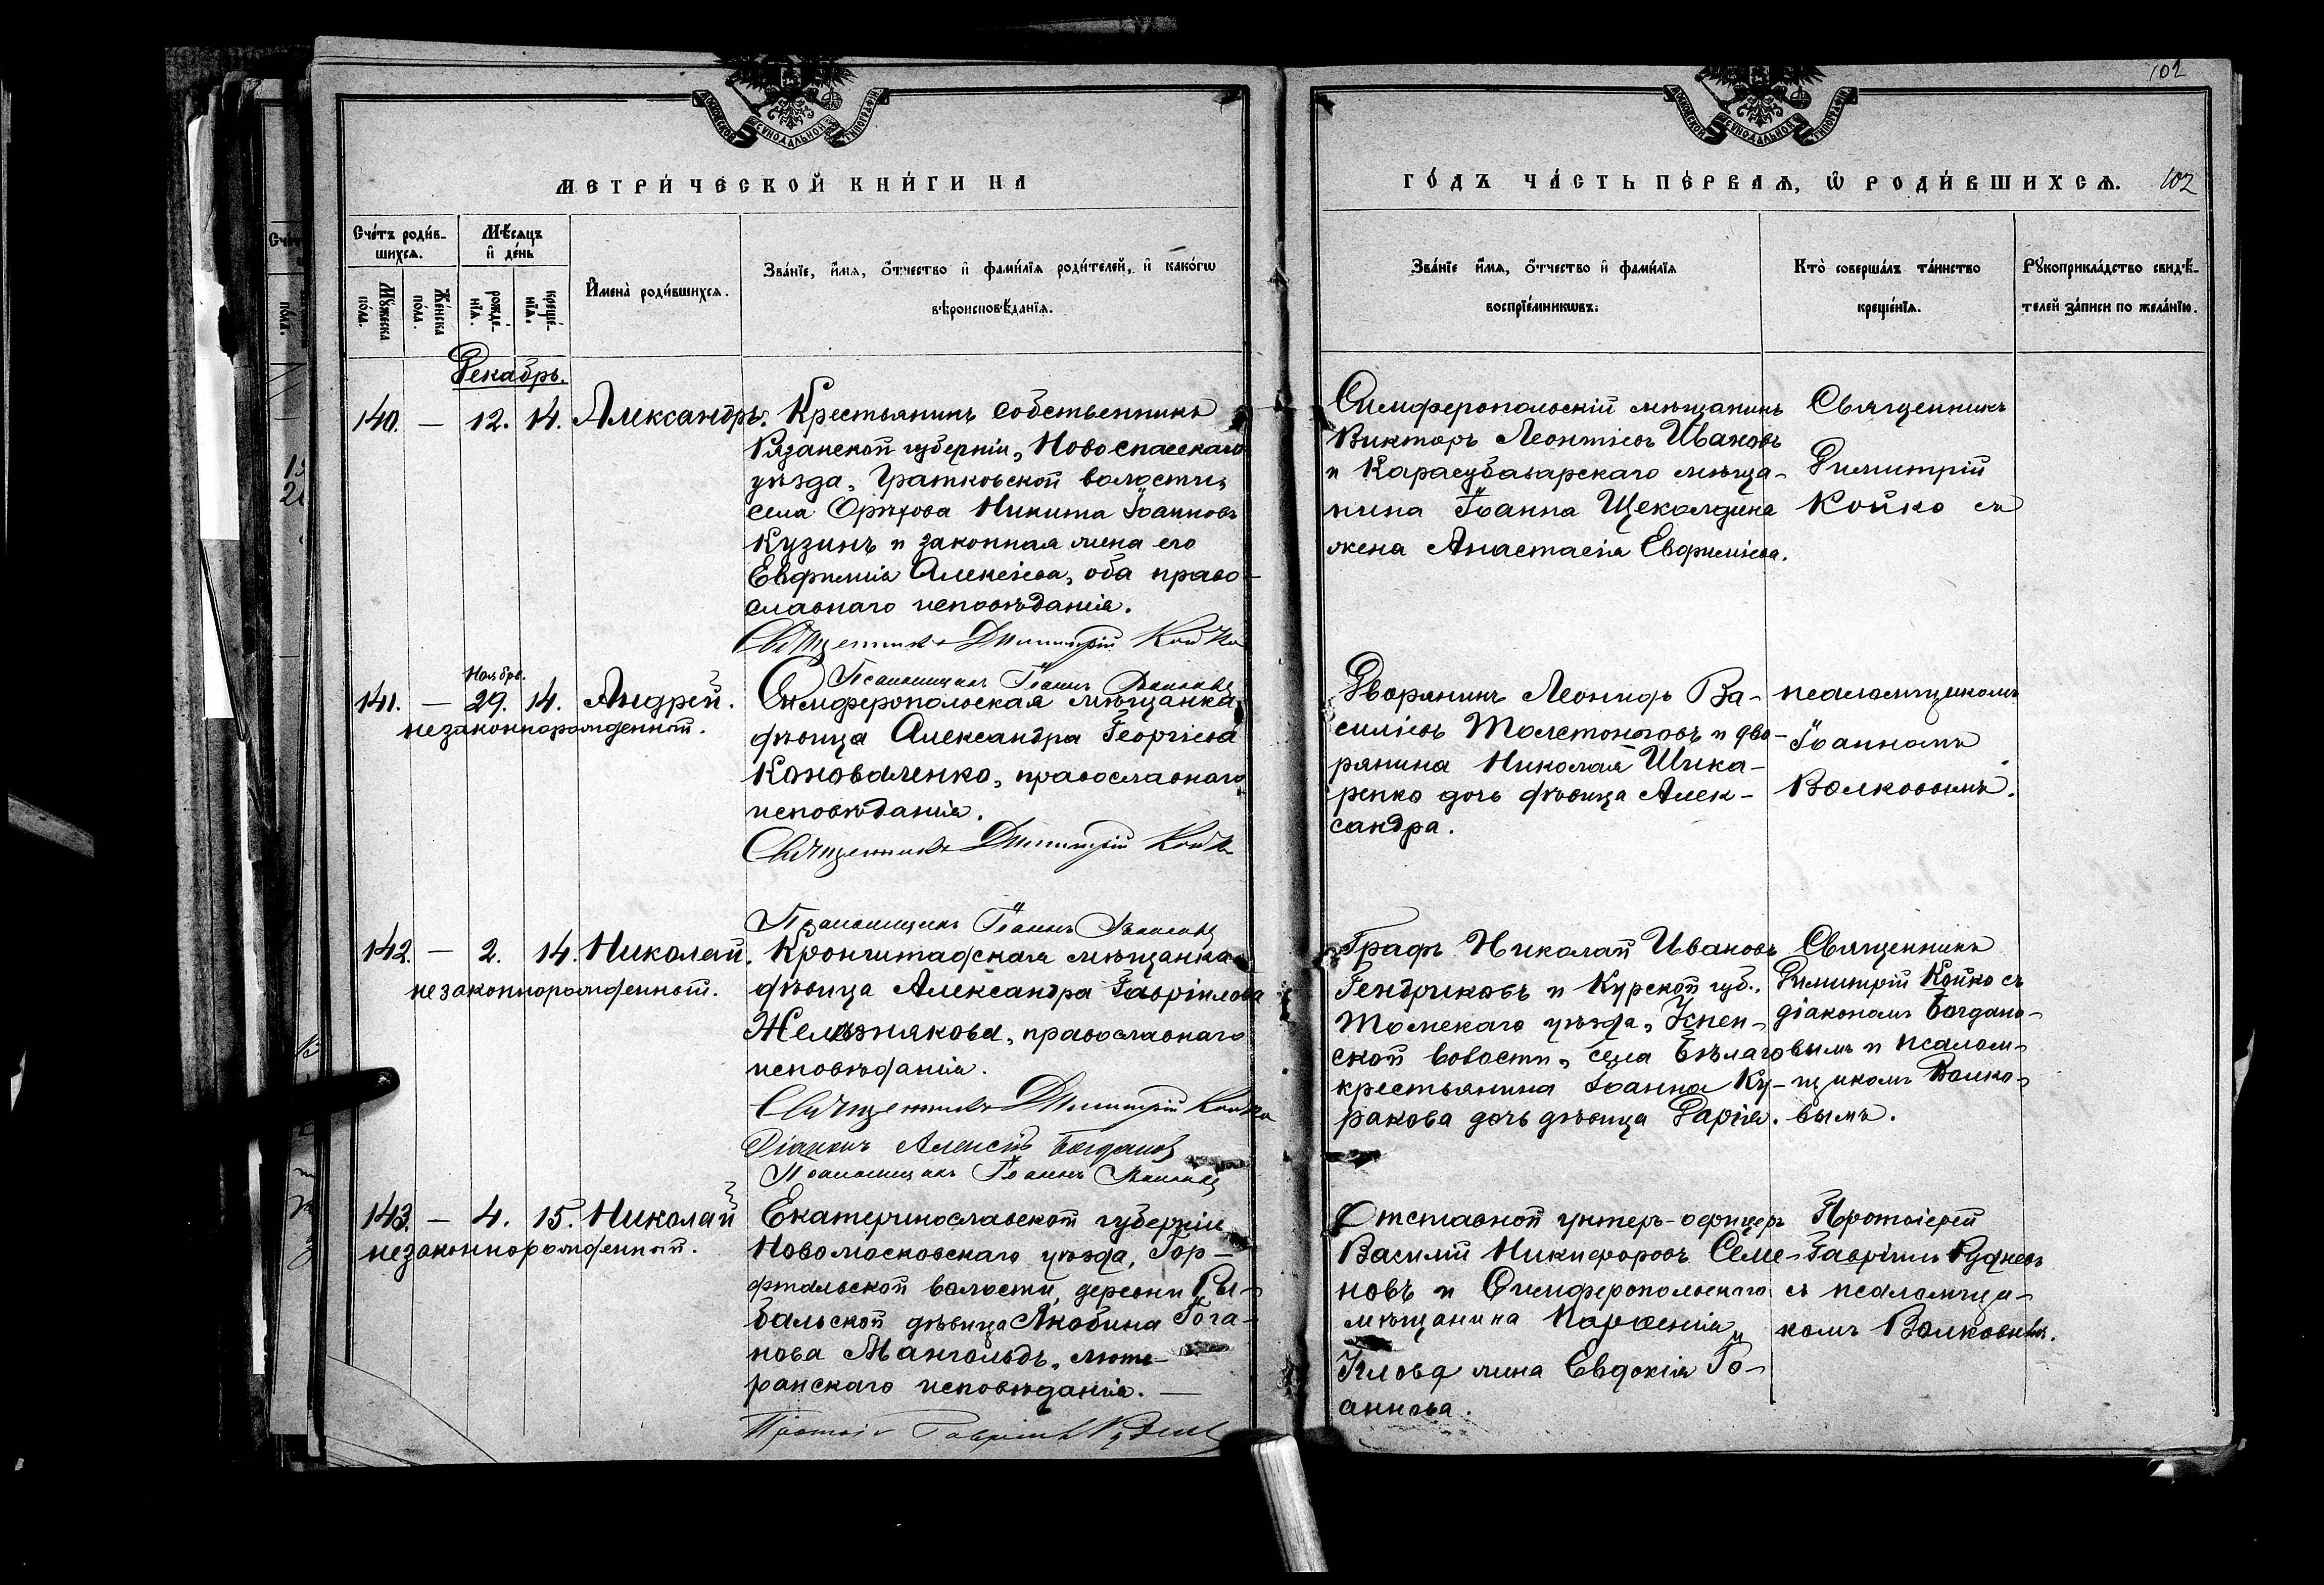 102
МОСКОВСКОЙ СѴНОДАЛЬНОЙ ТИПОГРАФІИ
МОСКОВСКОЙ СѴНОДАЛЬНОЙ ТИПОГРАФІИ
МЕТРИ́ЧЕСКОЙ КНИ́ГИ НА
ГО́ДЪ ЧА́СТЬ ПЕ́РВАѦ, Ѽ РОДИ́ВШИХСѦ. 102
Сче́тъ роди́в-
шихсѧ.
Мѣ́сѧцъ
и҆ де́нь
Мꙋ́жеска по́ла.
Же́нска по́ла.
рожде́-нїѧ.
креще́-нїѧ.
И҆мена̀ роди́вшихсѧ.
Зва́нїе, и҆́мѧ, ѻ҆́тчество и҆ фами́лїѧ роди́телей, и҆ како́гѡ
вѣроисповѣ́данїѧ.
Зва́нїе и҆́мѧ, ѻ҆́тчество и҆ фами́лїѧ
воспрїе́мникѡвъ.
Кто̀ соверша́лъ та́инство
креще́нїѧ.
Рꙋкоприкла́дство свидѣ́-
телей за́писи по жела́нїю.
Декабрь.
140. — 12. 14. Александръ.
Крестьянинъ собственникъ
Рязанской губерніи, Новоспасскаго
уѣзда, Гратковской волости,
села Орѣхова Никита Іоанновъ
Кузинъ и законная жена его
Евфимія Алексіева, оба право-
славнаго исповѣданія.
Священникъ Димитрій Койко
Псаломщикъ Іоаннъ Волковъ
Симферопольскій мѣщанинъ
Викторъ Леонтіевъ Ивановъ
и Карасубазарскаго мѣща-
нина Іоанна Щеколдина
жена Анастасія Евфиміева.
Священникъ
Димитрій
Койко съ
Ноябрь.
141. — 29. 14. Андрей.
незаконнорожденный.
Симферопольская мѣщанка,
дѣвица Александра Георгіева
Коноваленко, православнаго
исповѣданія.
Священникъ Димитрій Койко
Псаломщикъ Іоаннъ Волковъ
Дворянинъ Леонидъ Ва-
силіевъ Толстоноговъ и дво-
рянина Николая Шка-
ренко дочь дѣвица Алек-
сандра.
псаломщикомъ
Іоанномъ
Волковымъ.
142. — 2. 14. Николай.
незаконнорожденный.
Кронштадская мѣщанка
дѣвица Александра Гавріилова
Желѣзнякова, православнаго
исповѣданія.
Священникъ Димитрій Койко
Діаконъ Алексій Богдановъ
Псаломщикъ Іоаннъ Волковъ
Графъ Николай Ивановъ
Гендриковъ и Курской губ.,
уѣзда,
ской волости, села Бѣлаго
крестьянина Іоанна Ку-
ракова дочь дѣвица Дарія.
Священникъ
Димитрій Койко съ
діакономъ Богдано-
вымъ и псалом-
щикомъ Волко-
вымъ.
143. — 4. 15. Николай
незаконнорожденный.
Екатеринославской губерніи
Новомосковскаго уѣзда,
волости, деревни Ры-
бальской дѣвица Якобина Іога-
нова Мангольдъ, люте-
ранскаго исповѣданія. —
Протоі Гавріилъ Рудневъ
Отставной унтеръ-офицеръ
Василій Никифоровъ Семе-
новъ и Симферопольскаго
мѣщанина Парѳенія
жена Евдокія Іо-
аннова.
Протоіерей
Гавріилъ Рудневъ
съ псаломщи-
комъ Волковымъ.